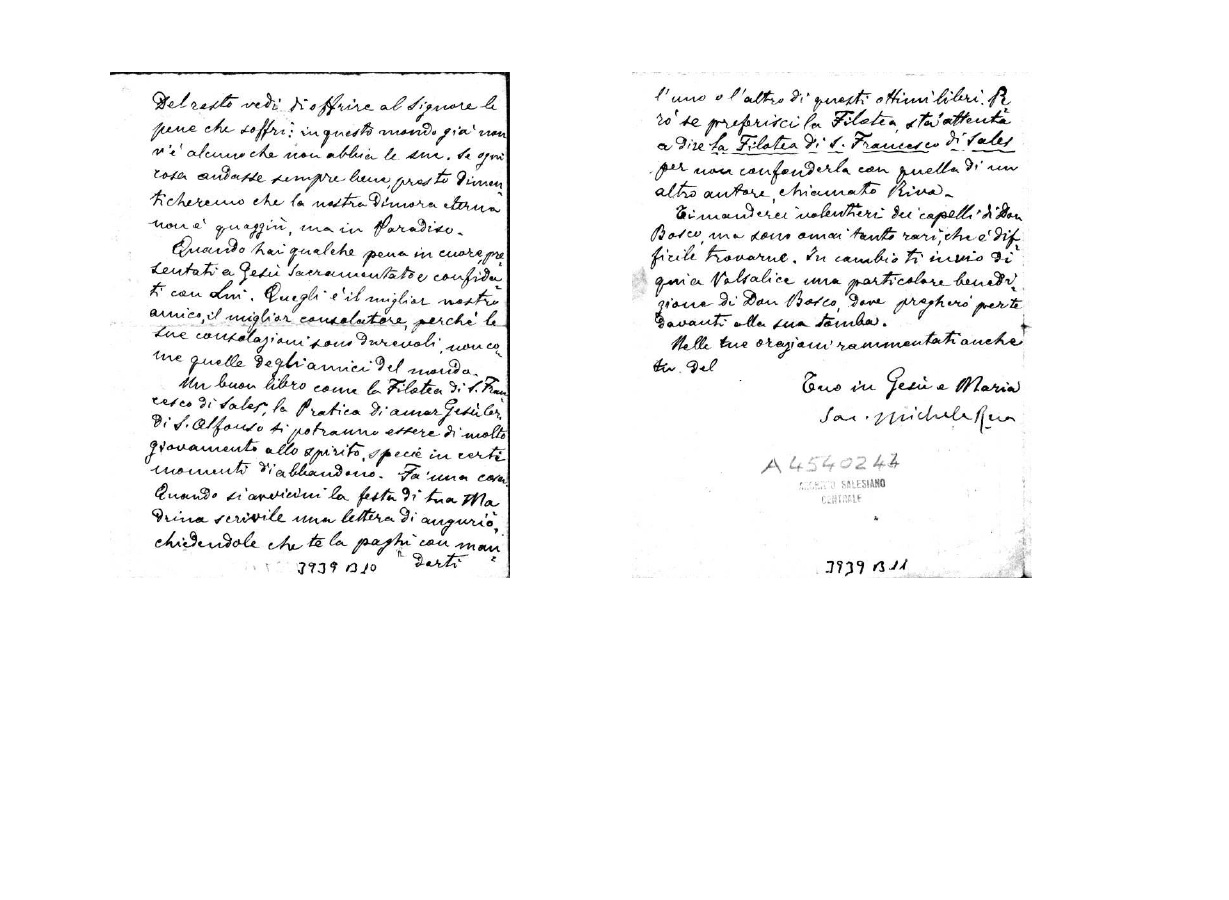 Del resto vedi di offrire al Signore le
pene che soffri: in questo mondo già non
v'è alcuno che non abbia le sue. Se ogni
cosa andasse sempre bene, presto dimen
ticheremo che la nostra dimora eterna
non è quaggiù, ma in Paradiso.
Quando hai qualche pena in cuore, pre
sentati a Gesù Sacramentato e confida
ti con Lui. Quegli è il miglior nostro
amico, il miglior consolatore, perchè le
sue consolazioni sono durevoli, non co
me quelle degli amici del mondo.
Un buon libro come la Filotea di S. Fran
cesco di Sales, la Pratica di amar Gesù Cr.
di S. Alfonso ti potranno essere di molto
giovamento allo spirito, specie in certi
momenti d'abbandono. Fa' una cosa.
Quando si avvicini la festa di tua Ma
drina scrivile una lettera di augurio,
chiedendole che te la paghi con man
darti
3939 B 10
l'uno o l'altro di questi ottimi libri. Pe
rò se preferisci la Filotea, sta' attenta
a dire la Filotea di S. Francesco di Sales
per non confonderla con quella di un
altro autore, chiamato Riva.
Ti manderei volentieri dei capelli di Don
Bosco, ma sono omai tanto rari, che è dif
ficile trovarne. In cambio ti invio di
qui a Valsalice una particolare benedi
zione di Don Bosco, dove pregherò per te
davanti alla sua tomba.
Nelle tue orazioni rammentati anche
tu del
Tuo in Gesù e Maria
Sac. Michele Rua
A4540244
ARCHIVIO SALESIANO
CENTRALE
3939 B 11